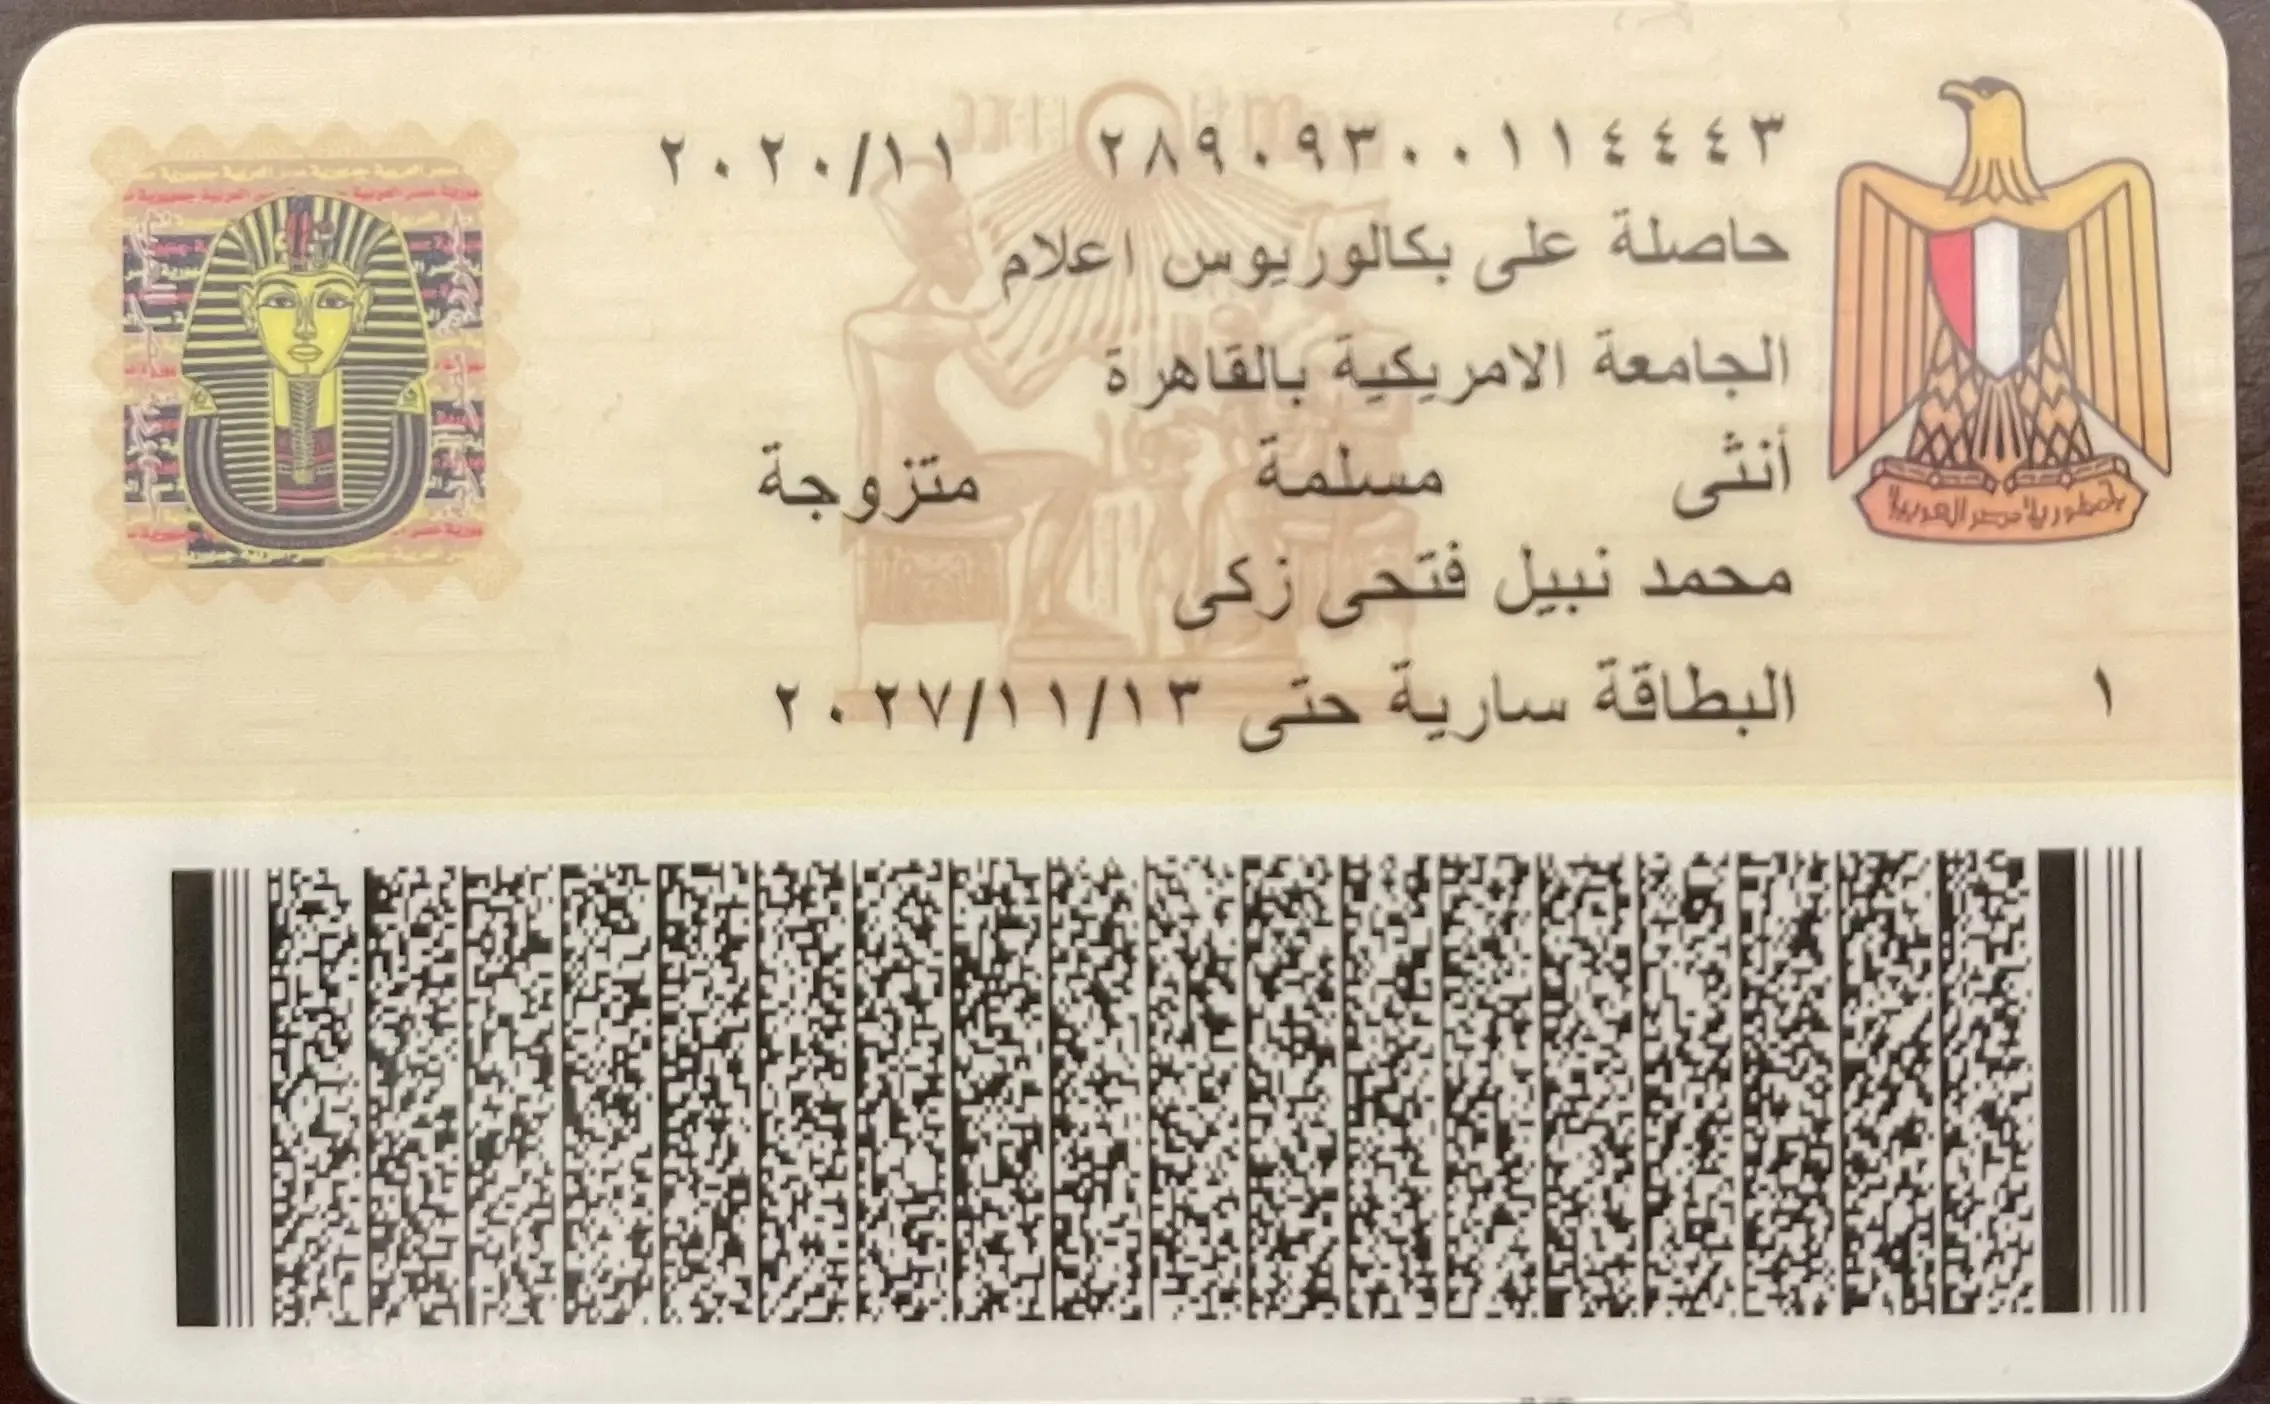 ٢٨٩٠٩٣٠٠١١٤٤٤٣ ٢٠٢٠/١١
حاصلة على بكالوريوس اعلام
الجامعة الامريكية بالقاهرة
أنثى مسلمة متزوجة
محمد نبيل فتحى زكى
البطاقة سارية حتى ٢٠٢٧/١١/١٣
١
جمهورية مصر العربية